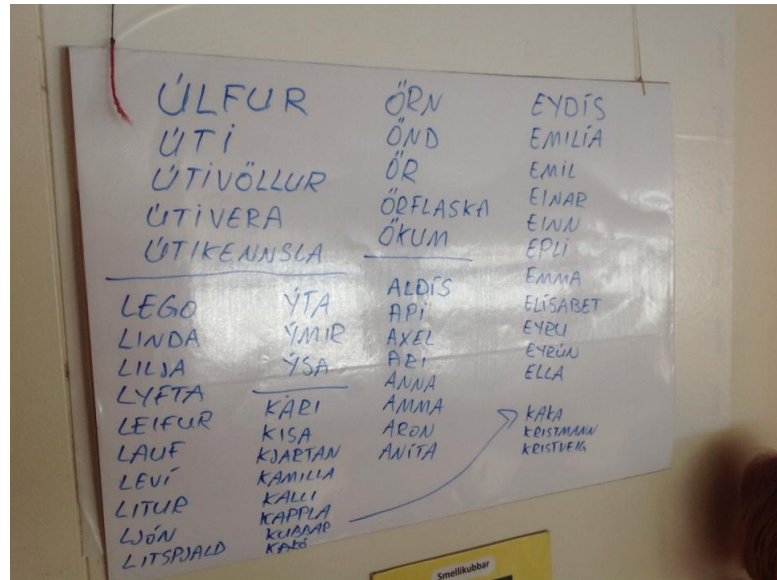 ÚLFUR
ÚTI
ÚTIVÖLLUR
ÚTIVERA
ÚTIKENNSLA
LEGO
LINDA
LILJA
LYFTA
LEIFUR
LAUF
LEVÍ
LITUR
LJÓN
LITSPJALD
ÝTA
ÝMIR
ÝSA
KÁRI
KISA
KJARTAN
KAMILLA
KALLI
KAPPLA
KUBBAR
KAKÓ
ÖRN
ÖND
ÖR
ÖRFLASKA
ÖKUM
ALDÍS
API
AXEL
ARI
ANNA
AMMA
ARON
ANÍTA
EYDÍS
EMILÍA
EMIL
EINAR
EINN
EPLI
EMMA
ELÍSABET
EYRU
EYRÚN
ELLA
KAKA
KRISTMANN
KRISTVEIG
Smellikubbar